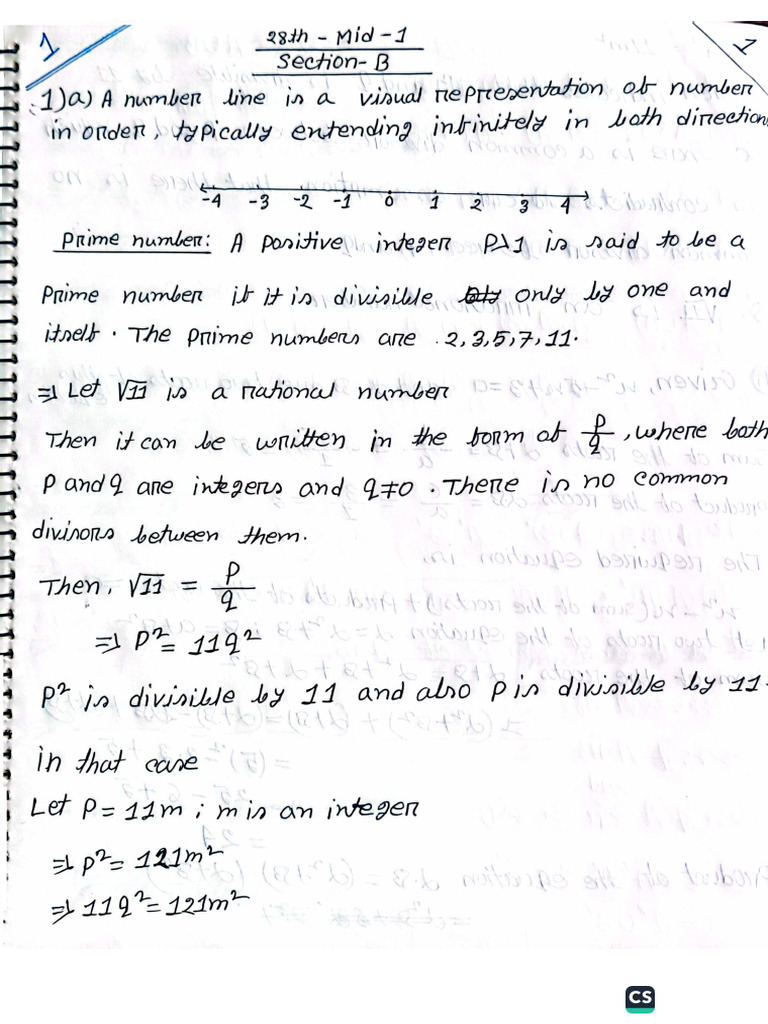 1
28th - Mid - 1
Section - B
1) a) A number line is a visual representation of number
in order, typically entending infinitely in both direction
-4 -3 -2 -1 0 1 2 3 4
Prime number: A positive integer P>1 is said to be a
Prime number if it is divisible only by one and
itself. The prime numbers are 2,3,5,7,11.
⇒ Let √11 is a rational number
Then it can be written in the form of P/q, where both
P and q are integers and q≠0. There is no common
divisors between them.
Then, √11 = P/q
⇒ P² = 11q²
P² is divisible by 11 and also P is divisible by 11.
in that case
Let P = 11m ; m is an integer
⇒ P² = 121m²
⇒ 11q² = 121m²
CS